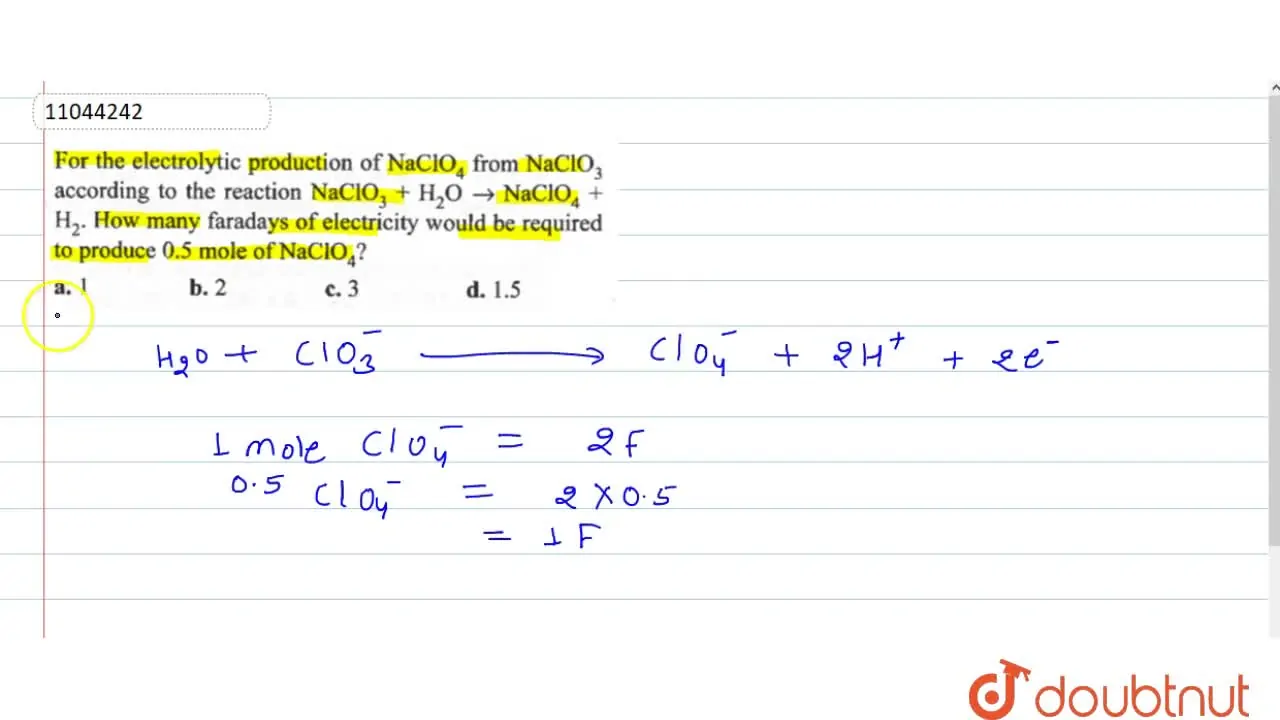 11044242
For the electrolytic production of NaClO₄ from NaClO₃
according to the reaction NaClO₃ + H₂O → NaClO₄ +
H₂. How many faradays of electricity would be required
to produce 0.5 mole of NaClO₄?
a. 1 b. 2 c. 3 d. 1.5
H₂O + ClO₃⁻ ⟶ ClO₄⁻ + 2H⁺ + 2e⁻
1 mole ClO₄⁻ = 2F
0.5 ClO₄⁻ = 2 × 0.5
= 1 F
doubtnut